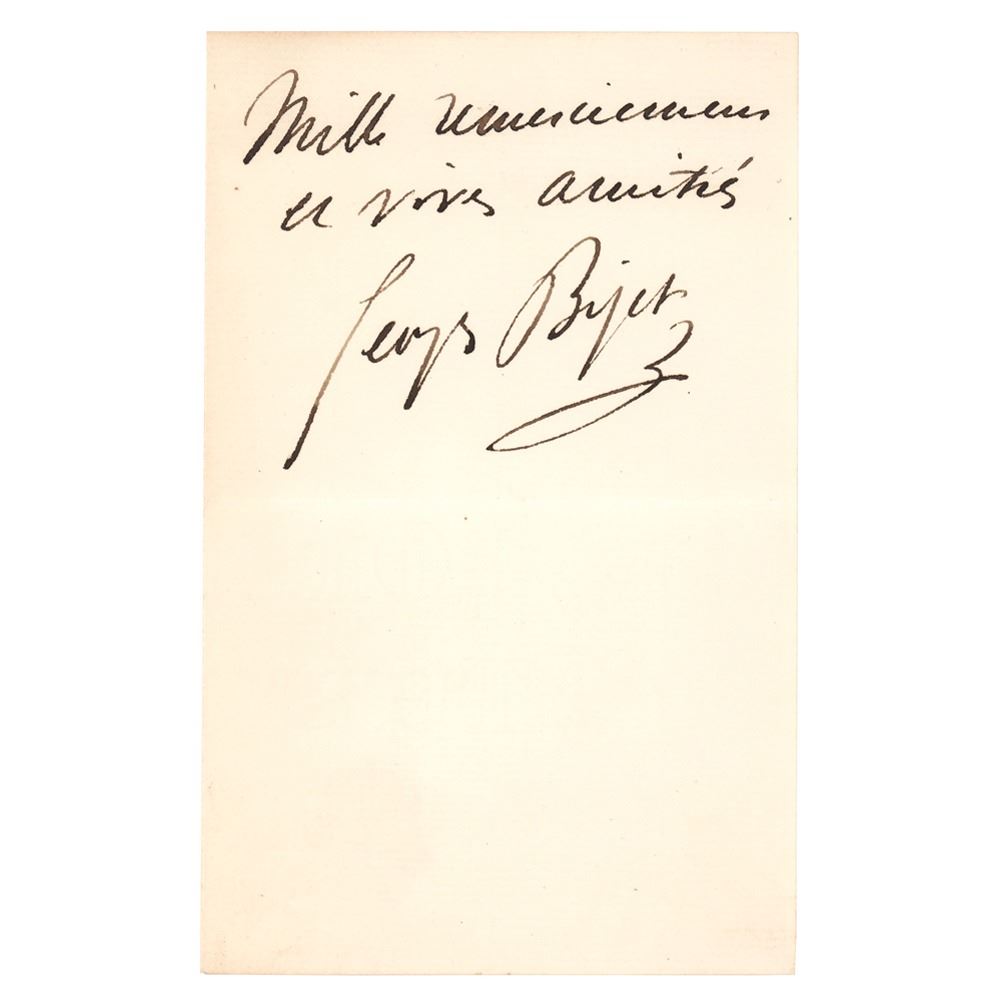 Mille remerciemens
et vives amitiés
Georges Bizet